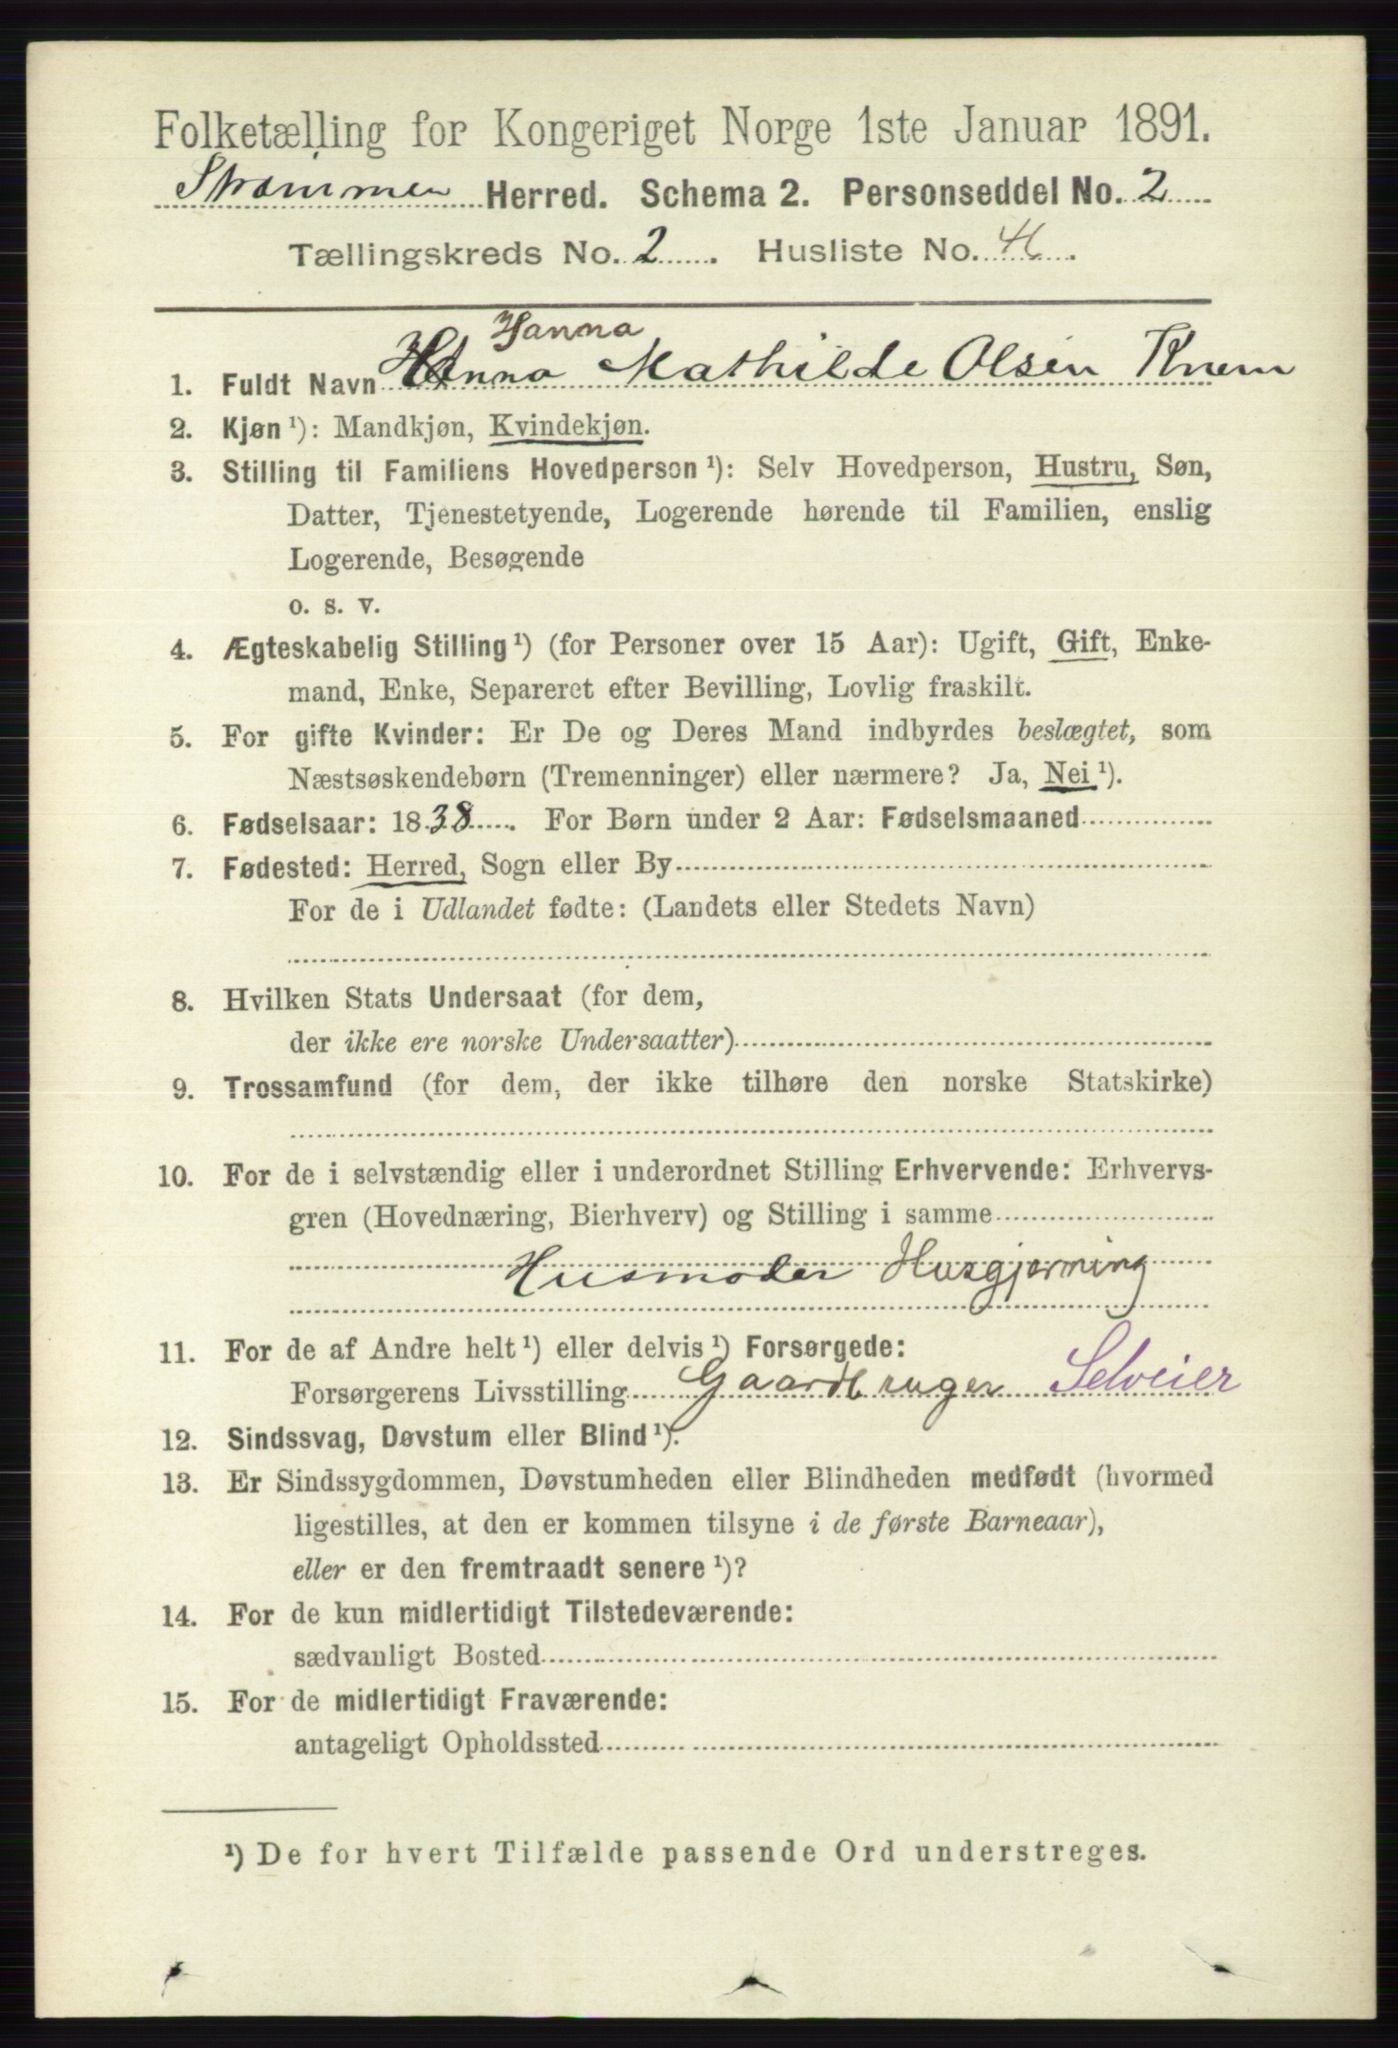 Folketælling for Kongeriget Norge 1ste Januar 1891.
Strømmen Herred. Schema 2. Personseddel No. 2
Tællingskreds No. 2. Husliste No.
Hanna
1. Fuldt Navn Mathilde Olsen Knem
2. Kjøn ¹): Mandkjøn, Kvindekjøn.
3. Stilling til Familiens Hovedperson ¹): Selv Hovedperson, Hustru, Søn,
Datter, Tjenestetyende, Logerende hørende til Familien, enslig
Logerende, Besøgende
o. s. v.
4. Ægteskabelig Stilling ¹) (for Personer over 15 Aar): Ugift, Gift, Enke-
mand, Enke, Separeret efter Bevilling, Lovlig fraskilt.
5. For gifte Kvinder: Er De og Deres Mand indbyrdes beslægtet, som
Næstsøskendebørn (Tremenninger) eller nærmere? Ja, Nei ¹).
6. Fødselsaar: 1838. For Børn under 2 Aar: Fødselsmaaned
7. Fødested: Herred, Sogn eller By
For de i Udlandet fødte: (Landets eller Stedets Navn)
8. Hvilken Stats Undersaat (for dem,
der ikke ere norske Undersaatter)
9. Trossamfund (for dem, der ikke tilhøre den norske Statskirke)
10. For de i selvstændig eller i underordnet Stilling Erhvervende: Erhvervs-
gren (Hovednæring, Bierhverv) og Stilling i samme
Husmoder Husgjerning
11. For de af Andre helt ¹) eller delvis ¹) Forsørgede:
Forsørgerens Livsstilling Gaardbruger Selveier
12. Sindssvag, Døvstum eller Blind ¹).
13. Er Sindssygdommen, Døvstumheden eller Blindheden medfødt (hvormed
ligestilles, at den er kommen tilsyne i de første Barneaar),
eller er den fremtraadt senere ¹)?
14. For de kun midlertidigt Tilstedeværende:
sædvanligt Bosted
15. For de midlertidigt Fraværende:
antageligt Opholdssted
¹) De for hvert Tilfælde passende Ord understreges.